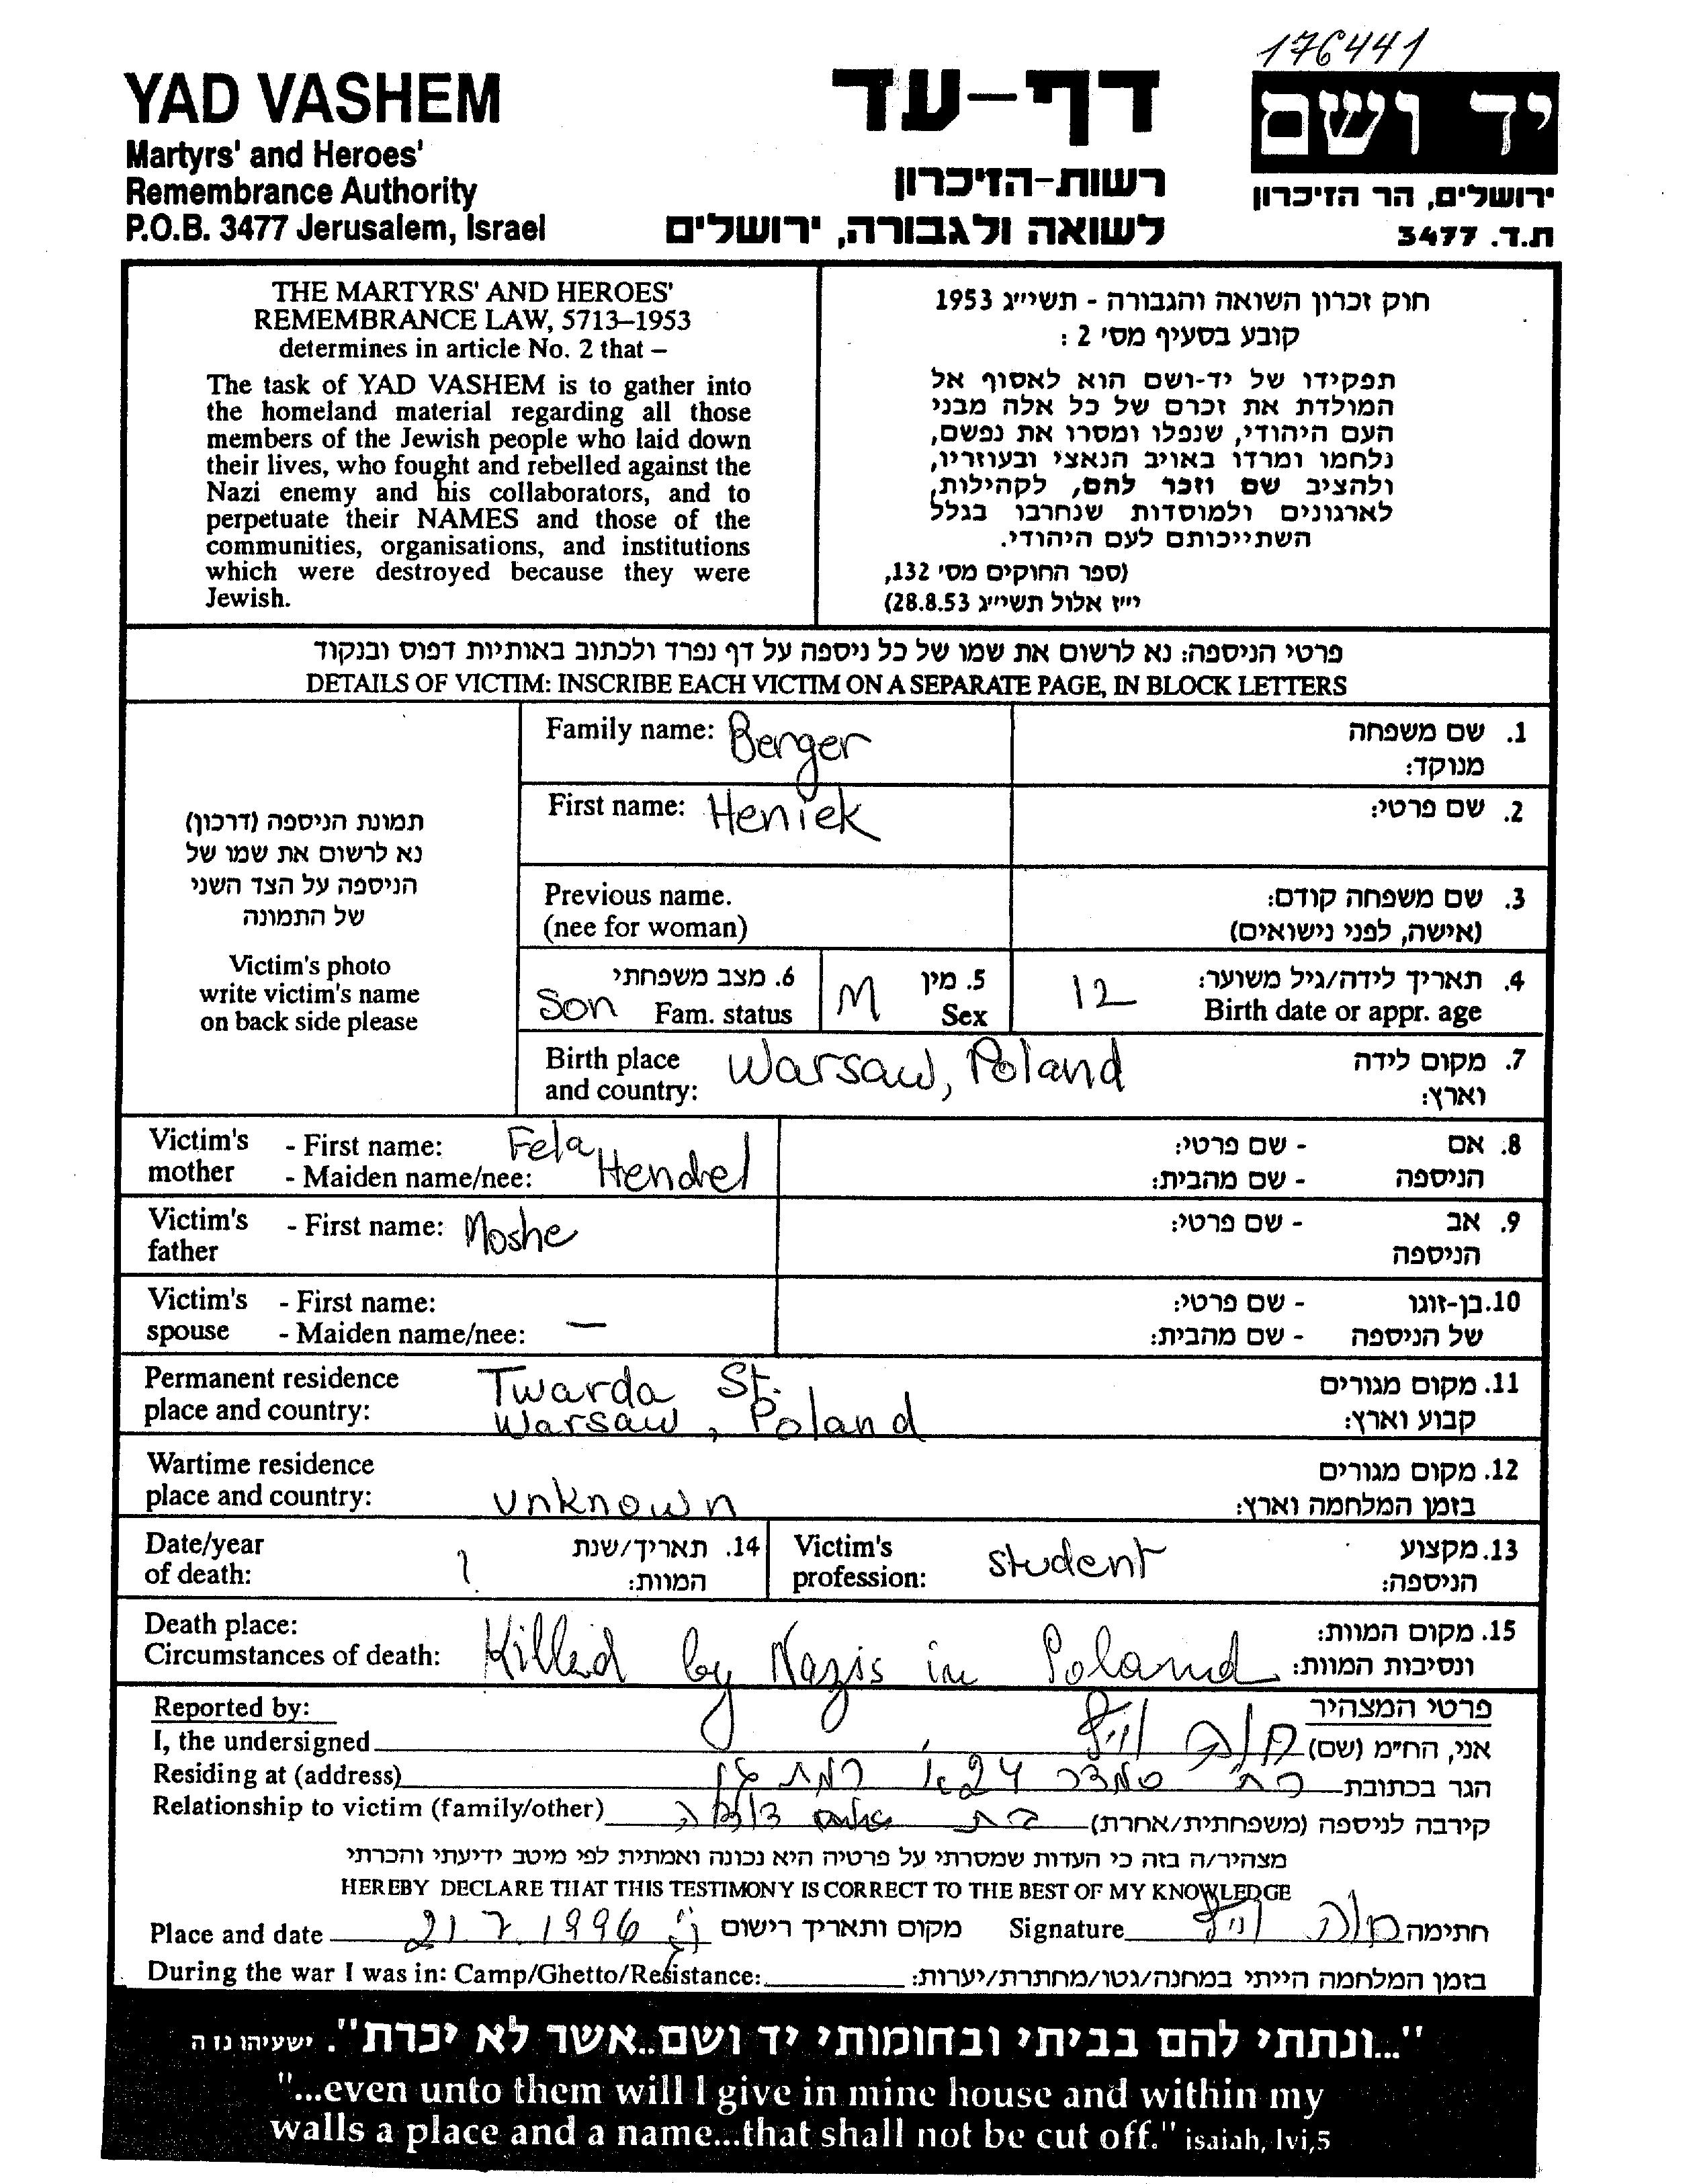 176441
YAD VASHEM
Martyrs' and Heroes'
Remembrance Authority
P.O.B. 3477 Jerusalem, Israel
דף-עד
רשות-הזיכרון
לשואה ולגבורה, ירושלים
יד ושם
ירושלים, הר הזיכרון
ת.ד. 3477
THE MARTYRS' AND HEROES'
REMEMBRANCE LAW, 5713–1953
determines in article No. 2 that –
The task of YAD VASHEM is to gather into
the homeland material regarding all those
members of the Jewish people who laid down
their lives, who fought and rebelled against the
Nazi enemy and his collaborators, and to
perpetuate their NAMES and those of the
communities, organisations, and institutions
which were destroyed because they were
Jewish.
חוק זכרון השואה והגבורה - תשי״ג 1953
קובע בסעיף מס' 2 :
תפקידו של יד-ושם הוא לאסוף אל
המולדת את זכרם של כל אלה מבני
העם היהודי, שנפלו ומסרו את נפשם,
נלחמו ומרדו באויב הנאצי ובעוזריו,
ולהציב שם וזכר להם, לקהילות,
לארגונים ולמוסדות שנחרבו בגלל
השתייכותם לעם היהודי.
(ספר החוקים מס' 132,
י״ז אלול תשי״ג 28.8.53)
פרטי הניספה: נא לרשום את שמו של כל ניספה על דף נפרד ולכתוב באותיות דפוס ובנקוד
DETAILS OF VICTIM: INSCRIBE EACH VICTIM ON A SEPARATE PAGE, IN BLOCK LETTERS
תמונת הניספה (דרכון)
נא לרשום את שמו של
הניספה על הצד השני
של התמונה
Victim's photo
write victim's name
on back side please
Family name: Berger 1. שם משפחה
מנוקד:
First name: Heniek 2. שם פרטי:
Previous name. 3. שם משפחה קודם:
(nee for woman) (אישה, לפני נישואים)
6. מצב משפחתי 5. מין 4. תאריך לידה/גיל משוער:
Son Fam. status M Sex 12 Birth date or appr. age
Birth place Warsaw, Poland 7. מקום לידה
and country: וארץ:
Victim's - First name: Fela - שם פרטי: 8. אם
mother - Maiden name/nee: Hendel - שם מהבית: הניספה
Victim's - First name: Moshe - שם פרטי: 9. אב
father הניספה
Victim's - First name: - שם פרטי: 10. בן-זוגו
spouse - Maiden name/nee: — - שם מהבית: של הניספה
Permanent residence Twarda St. 11. מקום מגורים
place and country: Warsaw, Poland קבוע וארץ:
Wartime residence 12. מקום מגורים
place and country: unknown בזמן המלחמה וארץ:
Date/year ? 14. תאריך/שנת Victim's student 13. מקצוע
of death: המוות: profession: הניספה:
Death place: 15. מקום המוות:
Circumstances of death: Killed by Nazis in Poland ונסיבות המוות:
Reported by: פרטי המצהיר
I, the undersigned אני, החי״מ (שם)
Residing at (address) הגר בכתובת רמת גן
Relationship to victim (family/other) קירבה לניספה (משפחתית/אחרת) בת
מצהיר/ה בזה כי העדות שמסרתי על פרטיה היא נכונה ואמתית לפי מיטב ידיעתי והכרתי
HEREBY DECLARE THAT THIS TESTIMONY IS CORRECT TO THE BEST OF MY KNOWLEDGE
Place and date 21.7.1996 מקום ותאריך רישום Signature חתימה
During the war I was in: Camp/Ghetto/Resistance: בזמן המלחמה הייתי במחנה/גטו/מחתרת/יערות:
"...ונתתי להם בביתי ובחומותי יד ושם..אשר לא יכרת". ישעיהו נו ה
"...even unto them will I give in mine house and within my
walls a place and a name...that shall not be cut off." isaiah, lvi,5